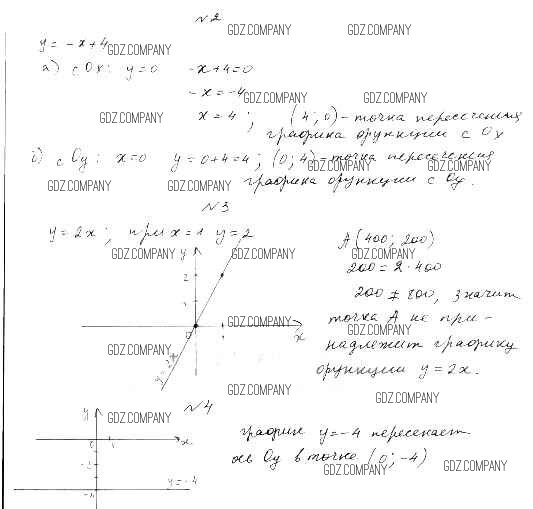 №2
GDZ.COMPANY GDZ.COMPANY
y = -x+4
GDZ.COMPANY
а) с Ox: y=0 -x+4=0
-x = -4
GDZ.COMPANY GDZ.COMPANY
GDZ.COMPANY x = 4; (4; 0) - точка пересечения
графика функции с Ox
б) с Oy: x=0 y=0+4=4; (0; 4) - точка пересечения
GDZ.COMPANY GDZ.COMPANY
GDZ.COMPANY GDZ.COMPANY графика функции с Oy.
№3
y = 2x; при x=1 y=2
A(400; 200)
GDZ.COMPANY y GDZ.COMPANY GDZ.COMPANY
200 = 2·400
2
200 ≠ 800, значит
1
точка A не при-
0 GDZ.COMPANY x GDZ.COMPANY
надлежит графику
GDZ.COMPANY
функции y = 2x.
y=2x
GDZ.COMPANY GDZ.COMPANY
№4
y GDZ.COMPANY
график y=-4 пересекает
0 1 x
ось Oy в точке (0; -4)
GDZ.COMPANY GDZ.COMPANY
-2
y=-4
-4